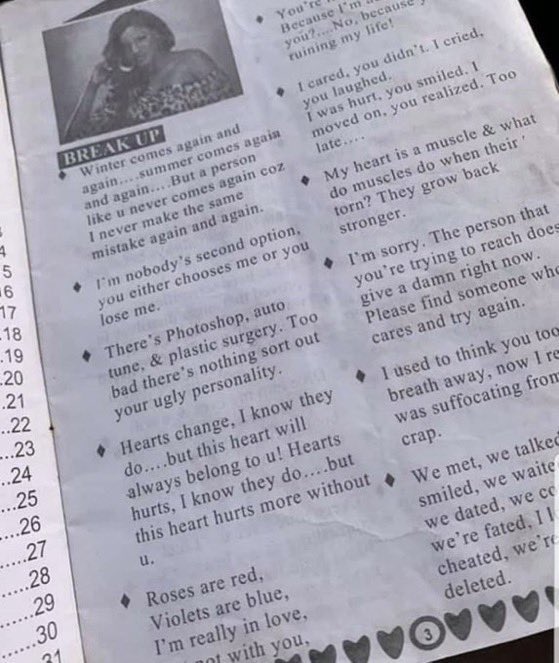 BREAK UP
Winter comes again and
again....summer comes again
and again....But a person
like u never comes again coz
I never make the same
mistake again and again.
I'm nobody's second option,
you either chooses me or you
lose me.
There's Photoshop, auto
tune, & plastic surgery. Too
bad there's nothing sort out
your ugly personality.
Hearts change, I know they
do....but this heart will
always belong to u! Hearts
hurts, I know they do....but
this heart hurts more without
u.
Roses are red,
Violets are blue,
I'm really in love,
not with you,
You're
Because I'm
you?....No, because
ruining my life!
I cared, you didn't. I cried,
you laughed.
I was hurt, you smiled. I
moved on, you realized. Too
late....
My heart is a muscle & what
do muscles do when their
torn? They grow back
stronger.
I'm sorry. The person that
you're trying to reach does
give a damn right now.
Please find someone wh
cares and try again.
I used to think you too
breath away, now I re
was suffocating from
crap.
We met, we talked
smiled, we waite
we dated, we ca
we're fated, I l
cheated, we're
deleted.
3
4
5
16
17
.18
.19
.20
.21
..22
...23
...24
....25
....26
.....27
.....28
.....29
.....30
31